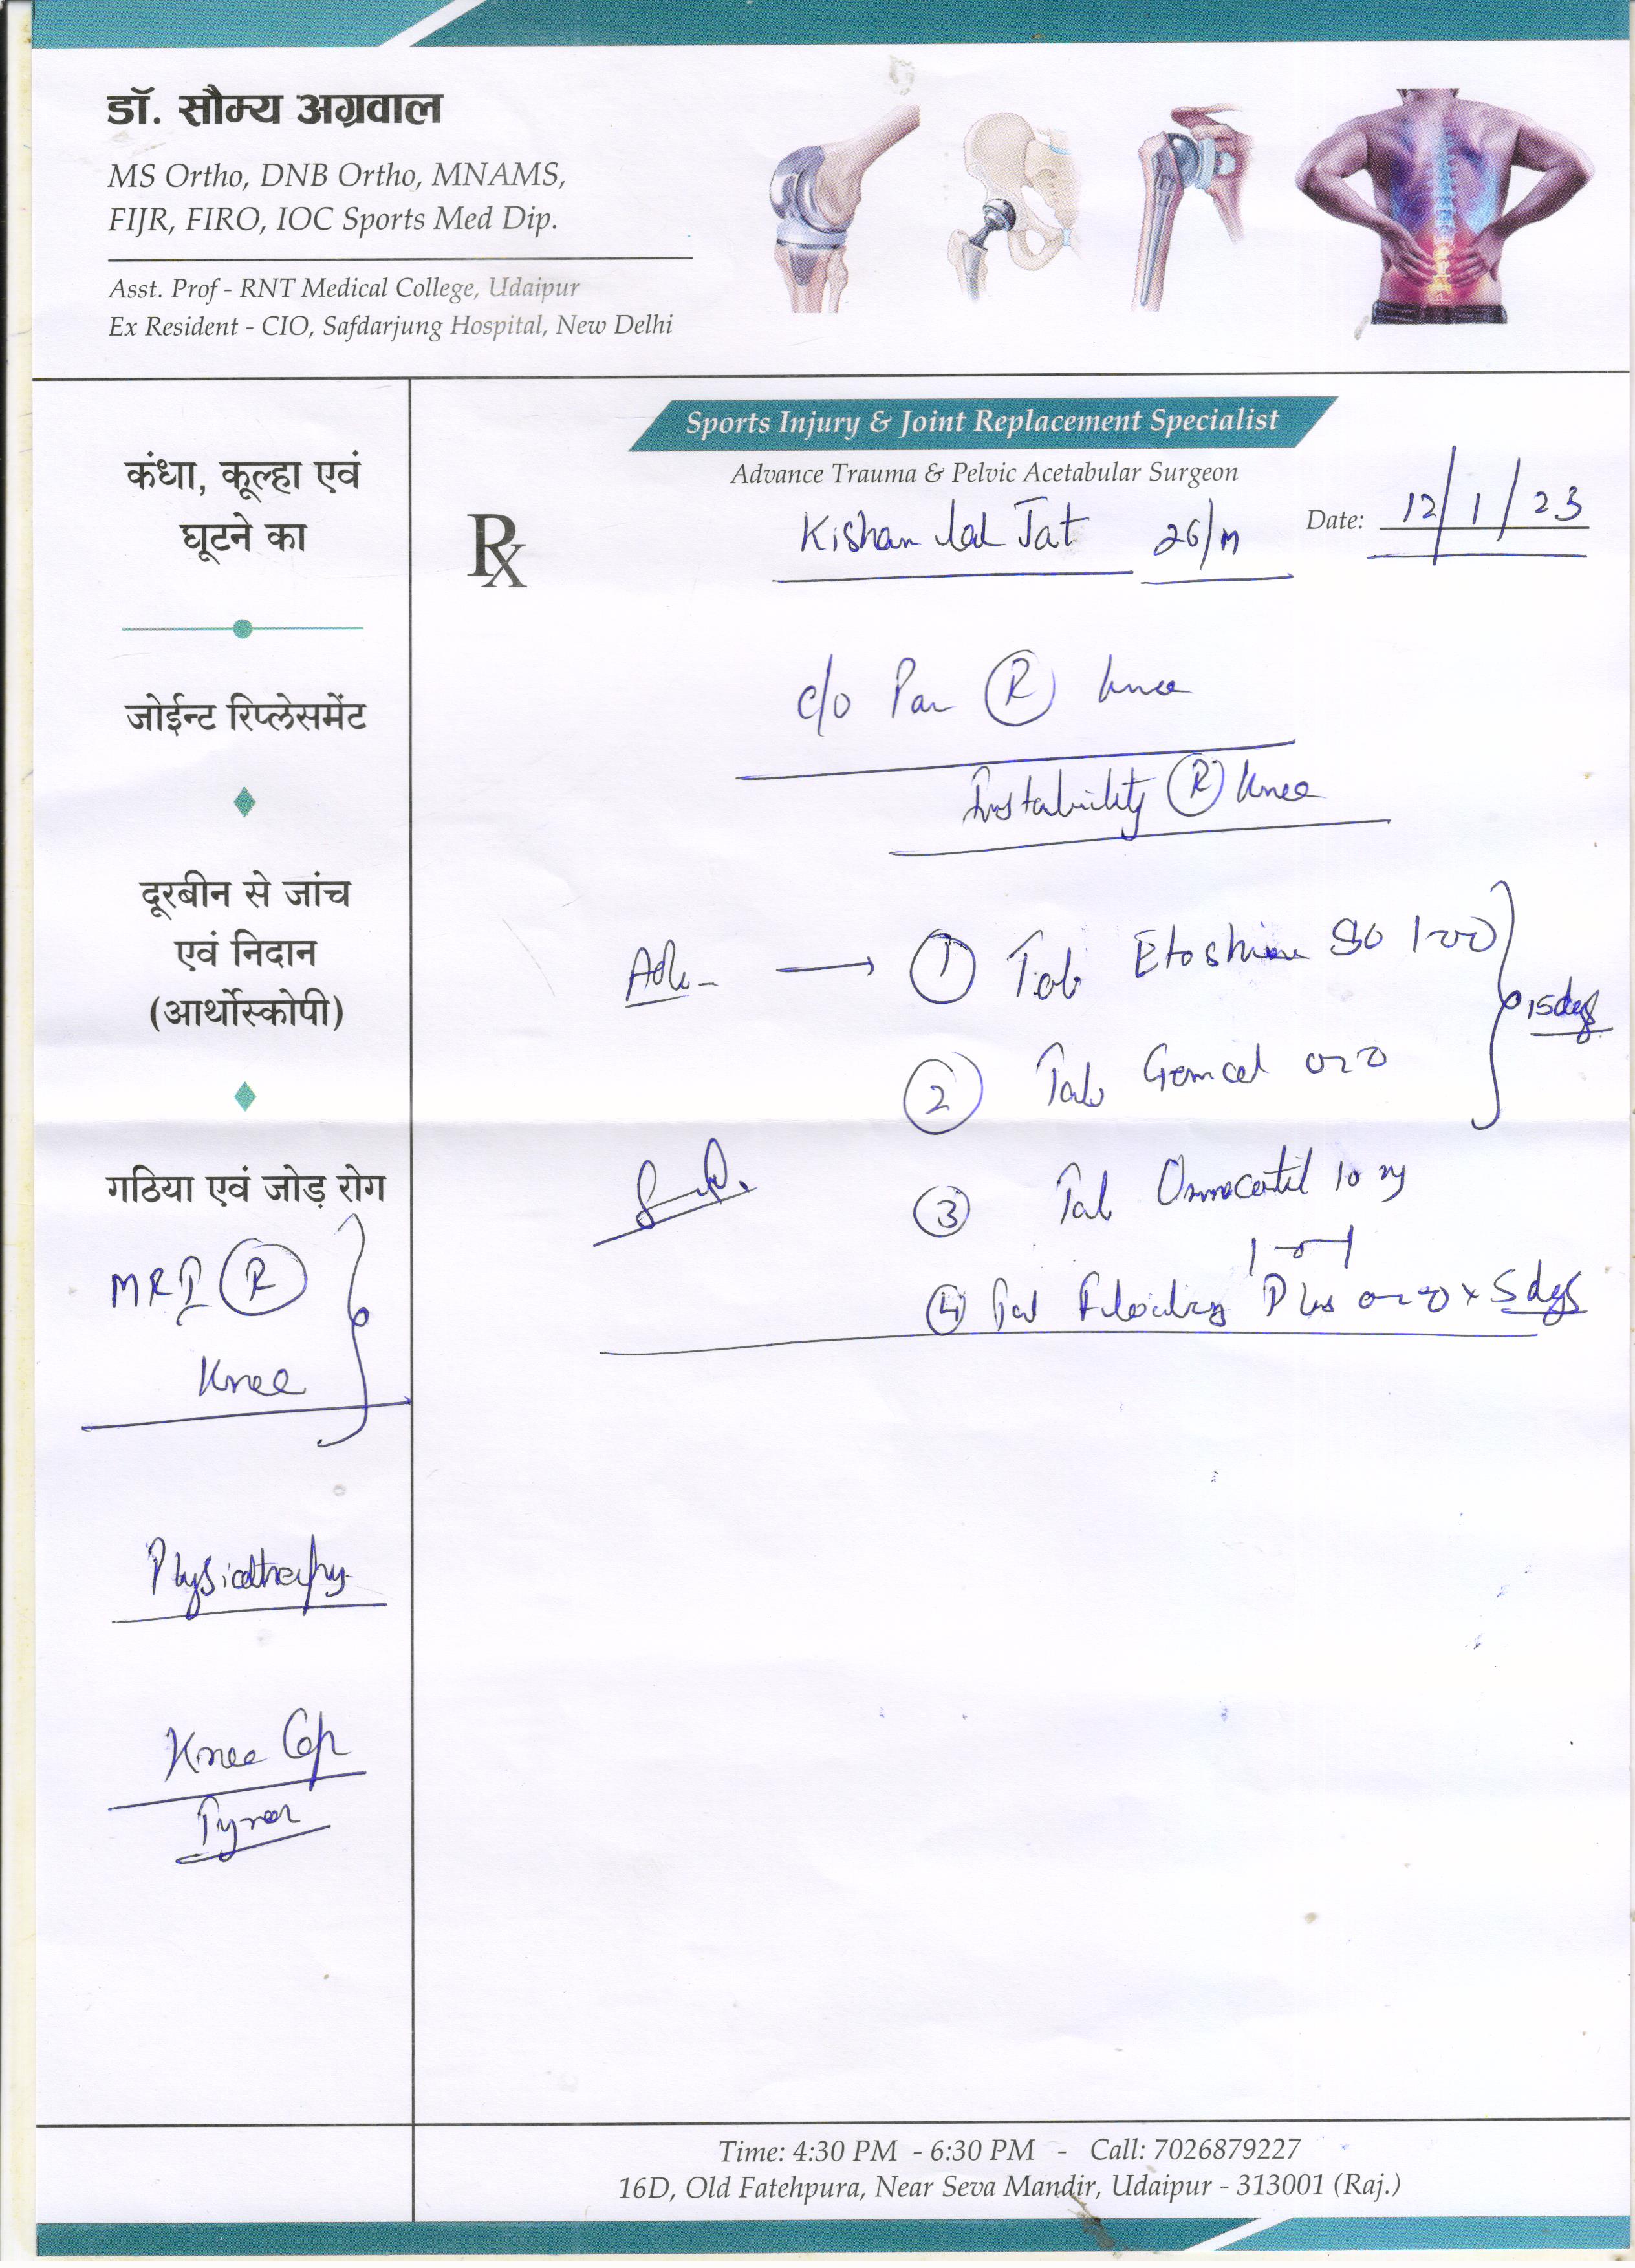 डॉ. सौम्य अग्रवाल
MS Ortho, DNB Ortho, MNAMS,
FIJR, FIRO, IOC Sports Med Dip.
Asst. Prof - RNT Medical College, Udaipur
Ex Resident - CIO, Safdarjung Hospital, New Delhi
Sports Injury & Joint Replacement Specialist
Advance Trauma & Pelvic Acetabular Surgeon
Rx
Kishan Lal Jat 26/M
Date: 12/1/23
c/o Pain R Knee
Instability R Knee
Adv → 1 Tab Etoshine 90
15 days
2 Tab Gemcal
3 Tab
4 Tab Plus x 5 days
कंधा, कूल्हा एवं
घूटने का
जोईन्ट रिप्लेसमेंट
दूरबीन से जांच
एवं निदान
(आर्थोस्कोपी)
गठिया एवं जोड़ रोग
MRI R
Knee
Physiotherapy
Knee Cap
Tynor
Time: 4:30 PM - 6:30 PM - Call: 7026879227
16D, Old Fatehpura, Near Seva Mandir, Udaipur - 313001 (Raj.)